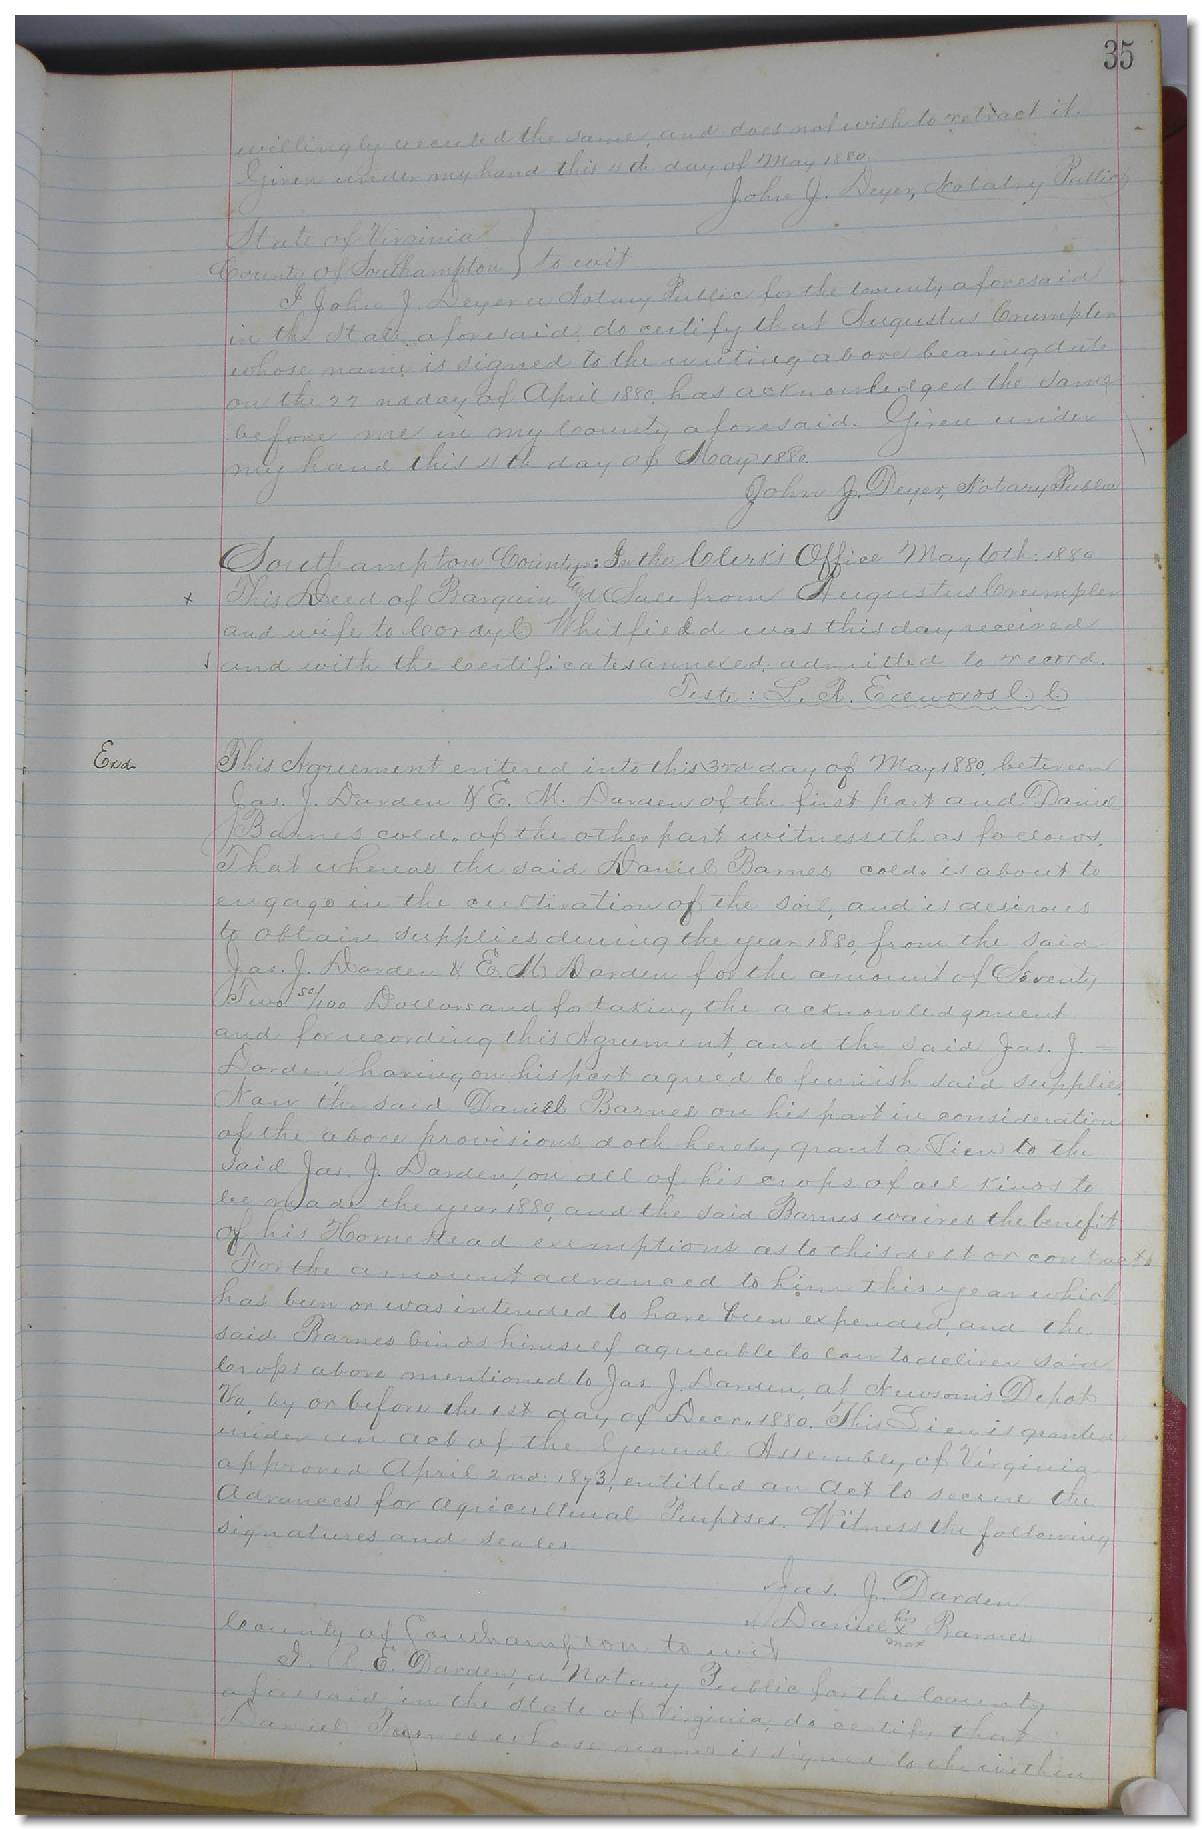 35
willingly executed the same, and does not wish to retract it.
Given under my hand this 4th day of May 1880.
John J. Deyer, Notatry Public
State of Virginia
County of Southampton } to wit
I John J. Deyer a Notary Public for the County aforesaid
in the State aforesaid, do certify that Augustus Crumpler
whose name is signed to the writing above bearing date
on the 22 nd day of April 1880, has acknowledged the same
before me in my County aforesaid. Given under
my hand this 4th day of May 1880.
John J. Deyer, Notary Public
Southampton County: In the Clerk's Office May 6th: 1880
x This Deed of Bargain and Sale from Augustus Crumpler
and wife to Cordy C Whitfield was this day received
and with the Certificates annexed, admitted to record.
Teste: L. R. Edwards C C
Exd
This Agreement entered into this 3rd day of May 1880, between
Jas. J. Darden & E. M. Darden of the first part and Daniel
Barnes cold. of the other part witnesseth as follows.
That whereas the said Daniel Barnes cold. is about to
engage in the cultivation of the soil, and is desirous
to obtain supplies during the year 1880, from the said
Jas. J. Darden & E. M. Darden for the amount of Seventy
Two 50/100 Dollars and for taking the acknowledgment
and for recording this Agreement, and the said Jas. J. =
Darden, having on his part agreed to furnish said supplies
Now the said Daniel Barnes on his part in consideration
of the above provisions doth hereby grant a Lien to the
said Jas. J. Darden, on all of his crops of all kinds to
be made the year 1880, and the said Barnes waives the benefit
of his Homestead exemptions as to this debt or contract,
For the amount advanced to him this year which
has been or was intended to have been expended, and the
said Barnes binds himself agreable to law to deliver said
Crops above mentioned to Jas J. Darden, at Newsom's Depot
Va, by or before the 1st day of Decr. 1880. This Lien is granted
under an act of the General Assembly of Virginia
approved April 2nd 1873, entitled an Act to secure the
Advances for Agricultural Purposes. Witness the following
signatures and seales
Jas. J. Darden
Daniel his x mark Barnes
County of Southampton to wit
I. E. Darden, a Notary Public for the County
aforesaid in the State of Virginia, do certify that
Daniel Barnes whose name is signed to the within